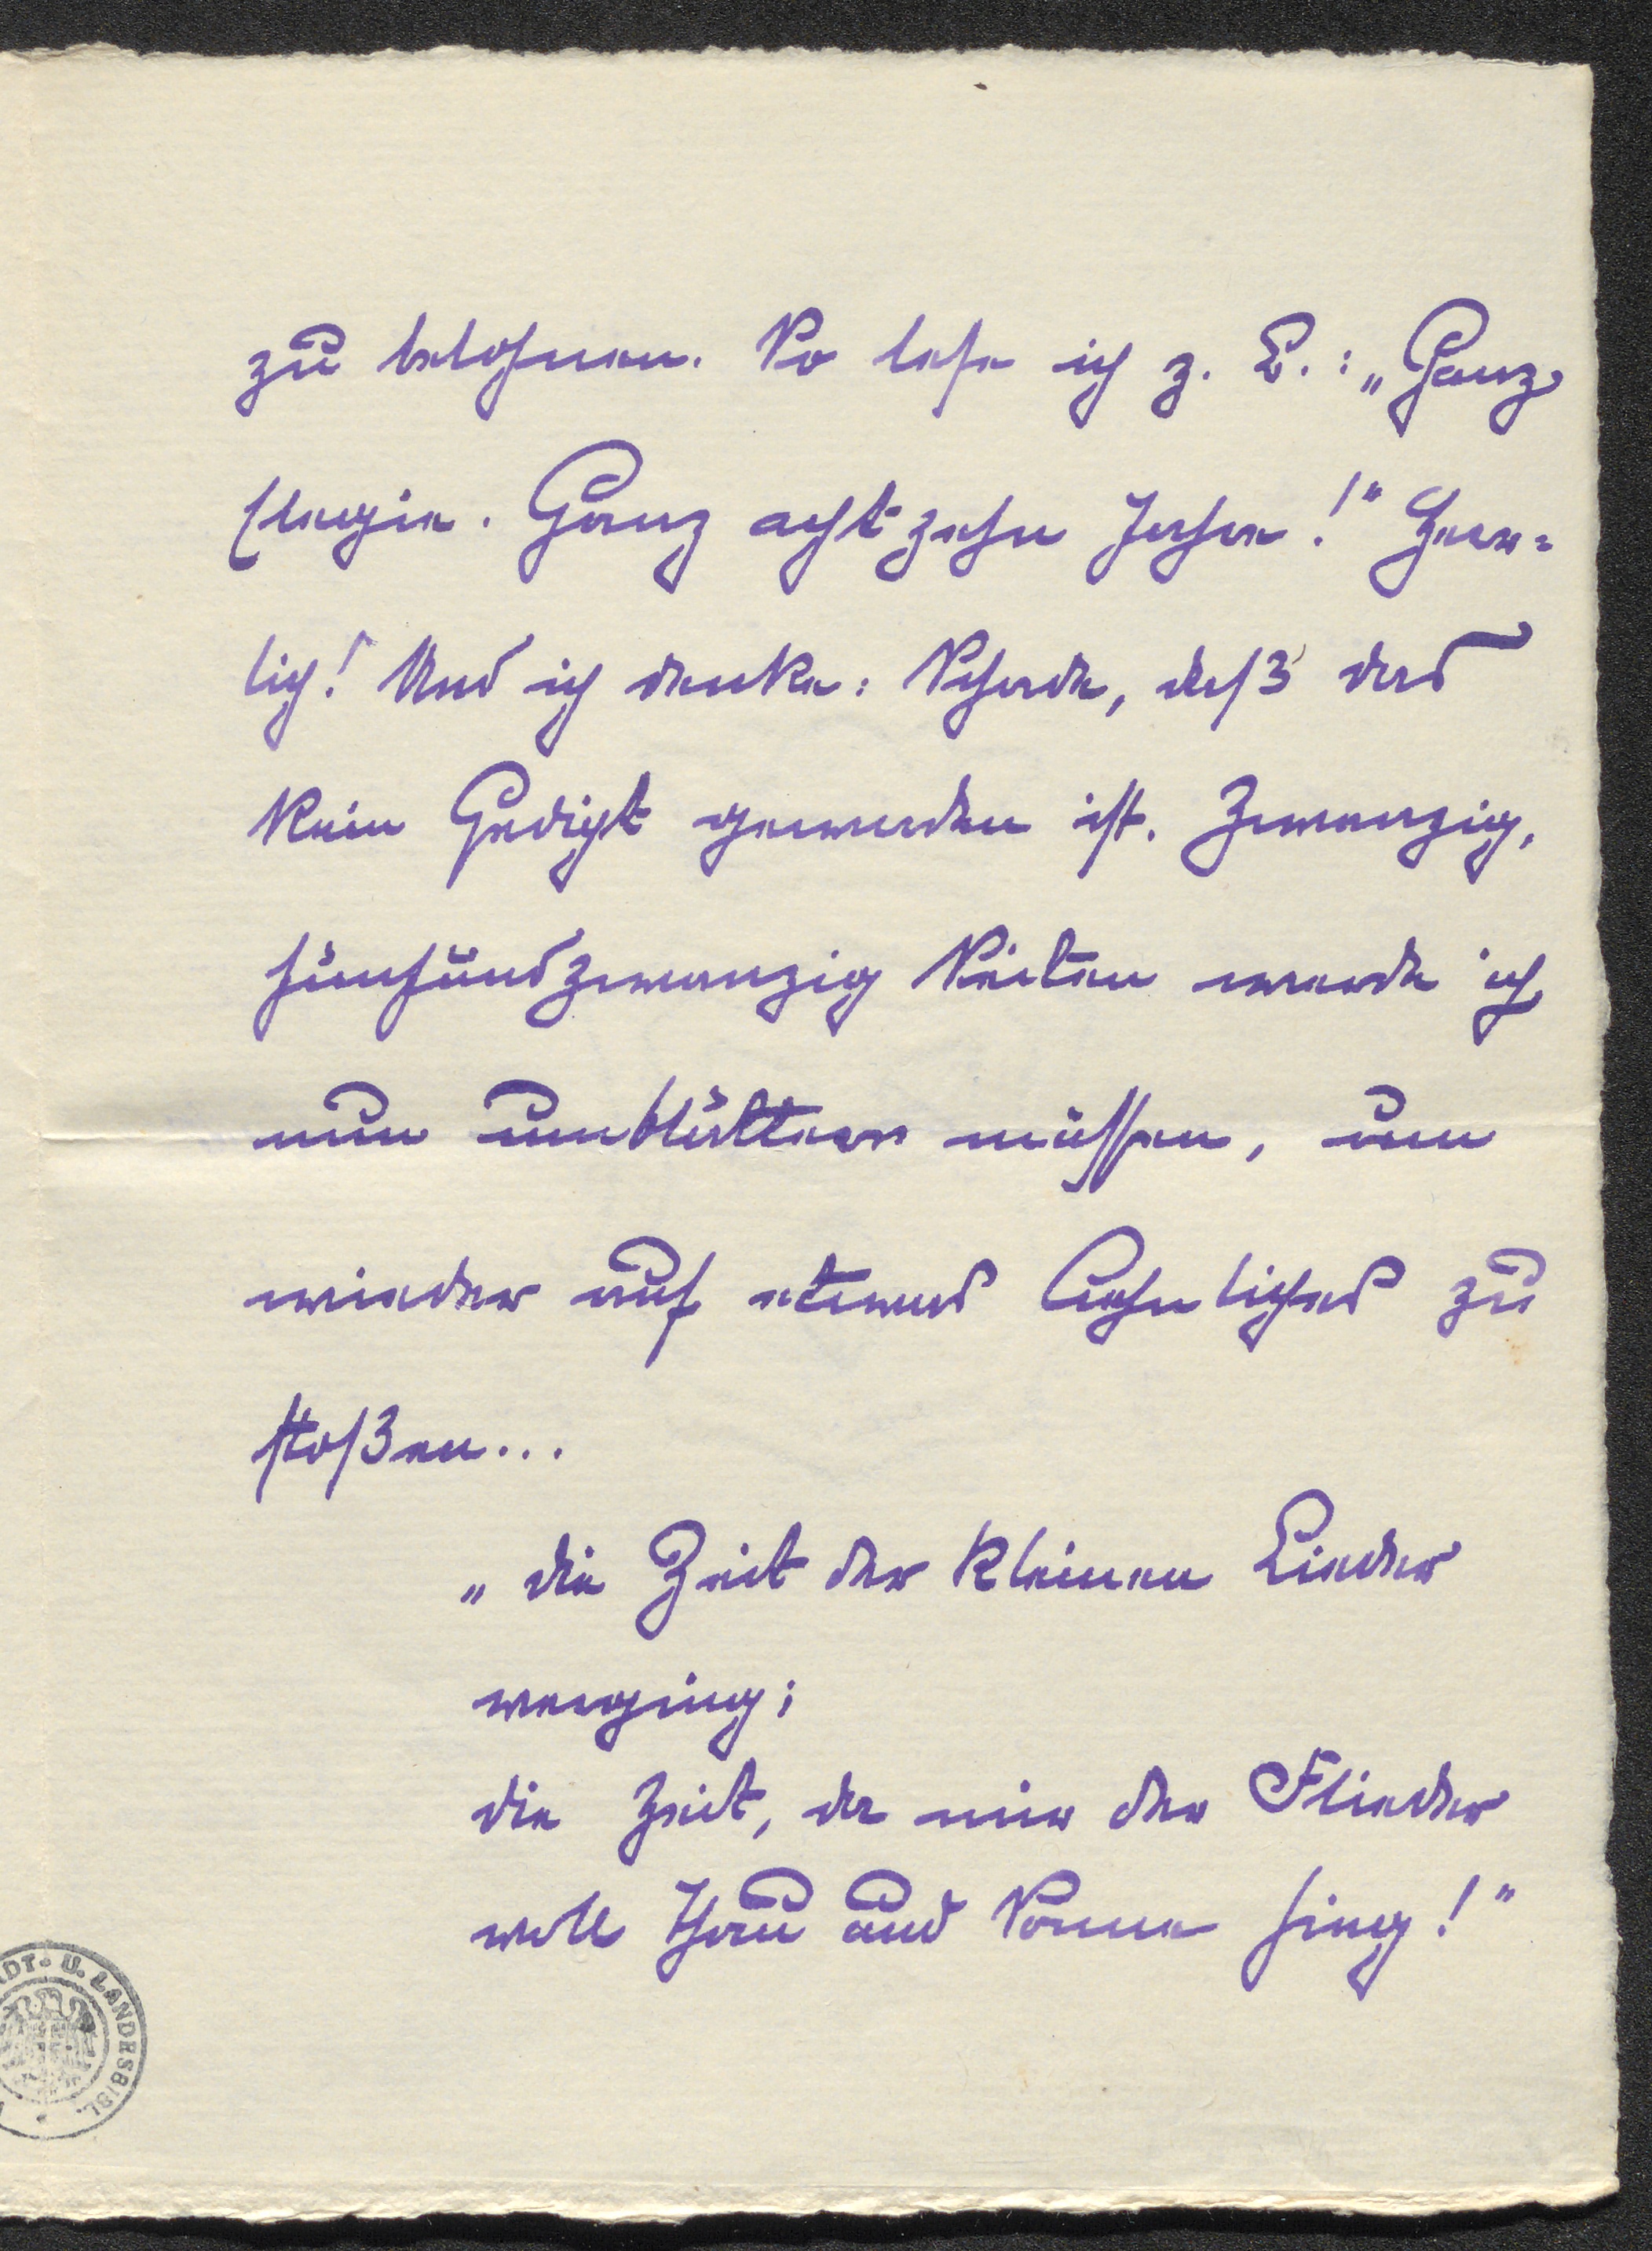 zu belohnen. So lese ich z. B.: „Ganz
Elegie. Ganz achtzehn Jahre!" Herr=
lich! Und ich denke: Schade, daß das
kein Gedicht geworden ist. Zwanzig,
fünfundzwanzig Seiten werde ich
nun umblättern müssen, um
wieder auf etwas Aehnliches zu
stoßen...
„die Zeit der kleinen Lieder
verging;
die Zeit, da mir der Flieder
voll Thau und Sonne hing!"
DT- U. LANDESBIBL.